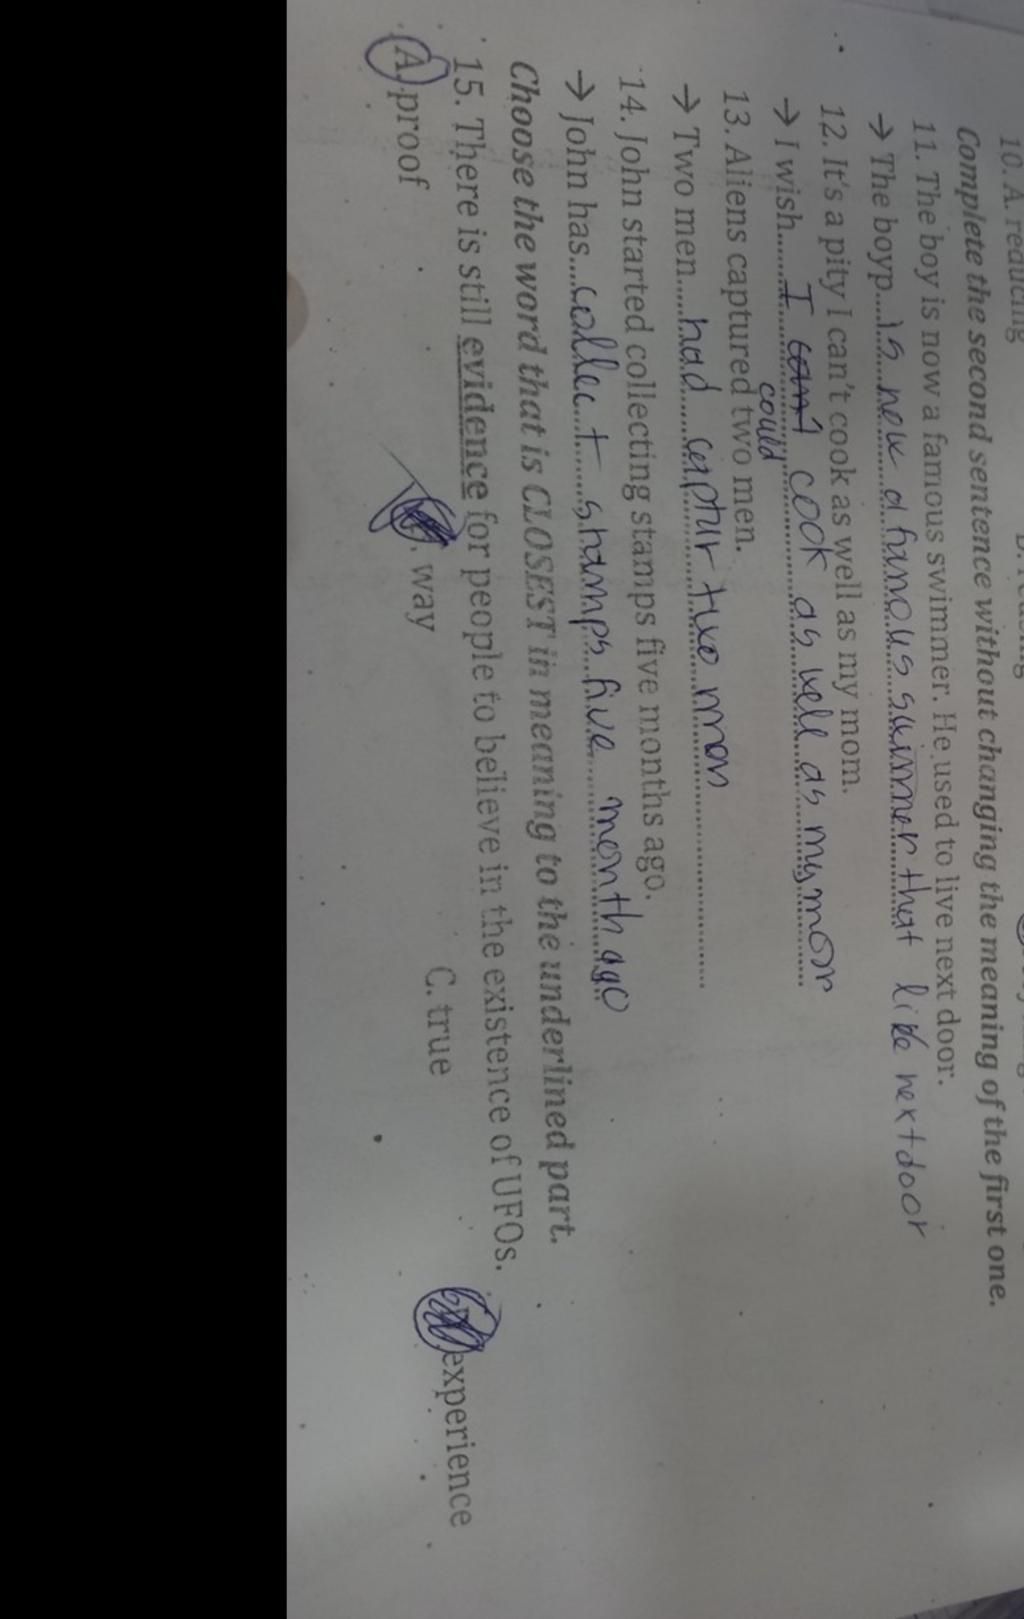 10. A. reducing
Complete the second sentence without changing the meaning of the first one.
11. The boy is now a famous swimmer. He used to live next door.
→ The boyp....is now a famous swimmer that like next door
12. It's a pity I can't cook as well as my mom.
→ I wish...... I can't could cook as well as my mom
13. Aliens captured two men.
→ Two men.....had captur two man
14. John started collecting stamps five months ago.
→ John has....collect stamps five month ago
Choose the word that is CLOSEST in meaning to the underlined part.
15. There is still evidence for people to believe in the existence of UFOs.
A. proof . way C. true experience